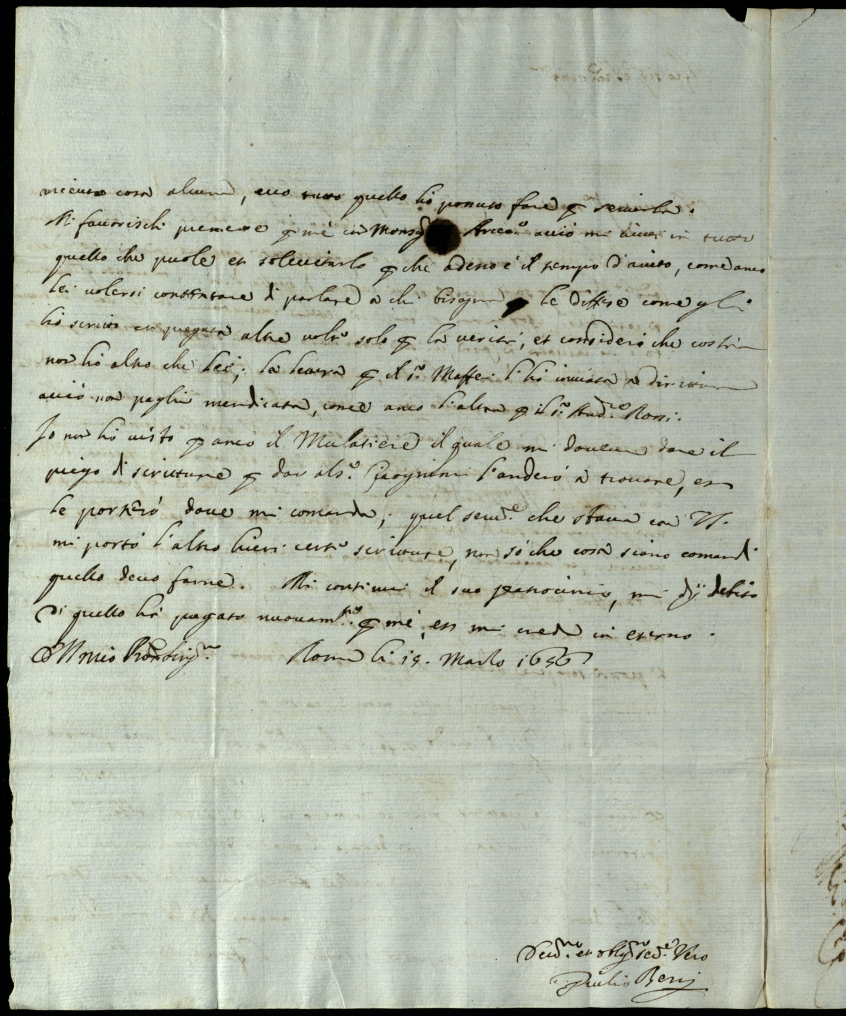 niente cosa alcuna, ecco tutto quello hò potuto fare per servirla.
Mi favorischi premere per mè con Monsig.r Arciv.o acciò mi aiuti in tutto
quello che puole et sollecitarlo per che adesso è il tempo d'aiuto, come anco
lei volersi contentare di parlare à chi bisogna, le difese come gli
hò scritto et pregata altre volte solo per la verità, et consideri che costì
non hò altro che Lei; la lettera per il s.r Maffei l'hò inviata à dirittura
acciò non paglia mendicata, come anco l'altra per il s.r Rossi.
Io non hò visto per anco il Mulatiere il quale mi doveva dare il
piego di scritture per dar al s.r l'anderò à trovare, et
le porterò dove mi comanda; quel serv.re che stava con VS.
mi portò l'altro hieri certe scritture, non sò che cosa siano comandi
quello devo farne. Mi continui il suo patrocinio, mi dij debito
di quello hà pagato nuovam.te per mè, et mi creda in eterno.
Ill.mo mio Roma li 15. Marzo 1656
Dev.mo et oblig.mo ser.re Vero
Giulio Benij